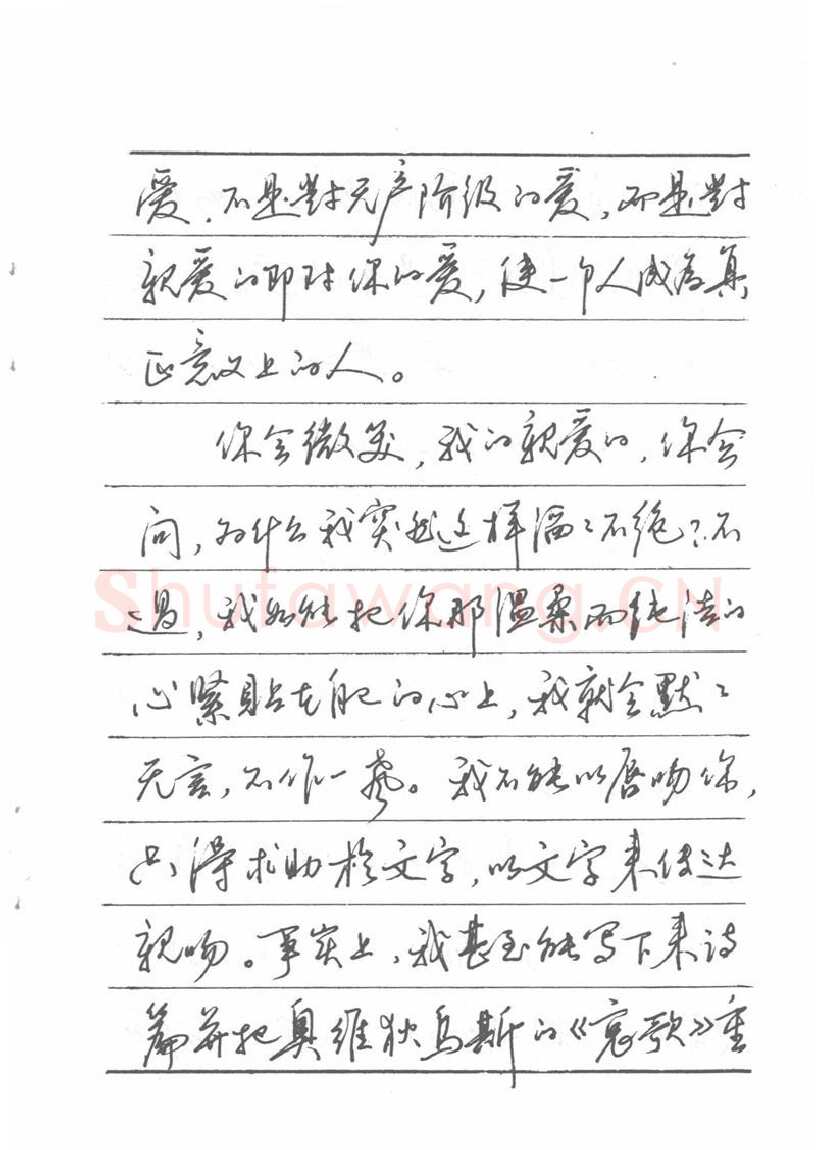 爱，不是對无产阶级的爱，而是對
親爱的即对你的爱，使一个人成为真
正意义上的人。
你会微笑，我的親爱的，你会
问，为什么我突然这样滔々不绝？不
过，我如能把你那温柔而纯洁的
心紧贴在自己的心上，我就会默々
无言，不作一声。我不能以唇吻你，
只得求助於文字，以文字来传达
親吻。事实上，我甚至能写下来诗
篇并把奥维狄乌斯的《哀歌》重
Shufawang.CN